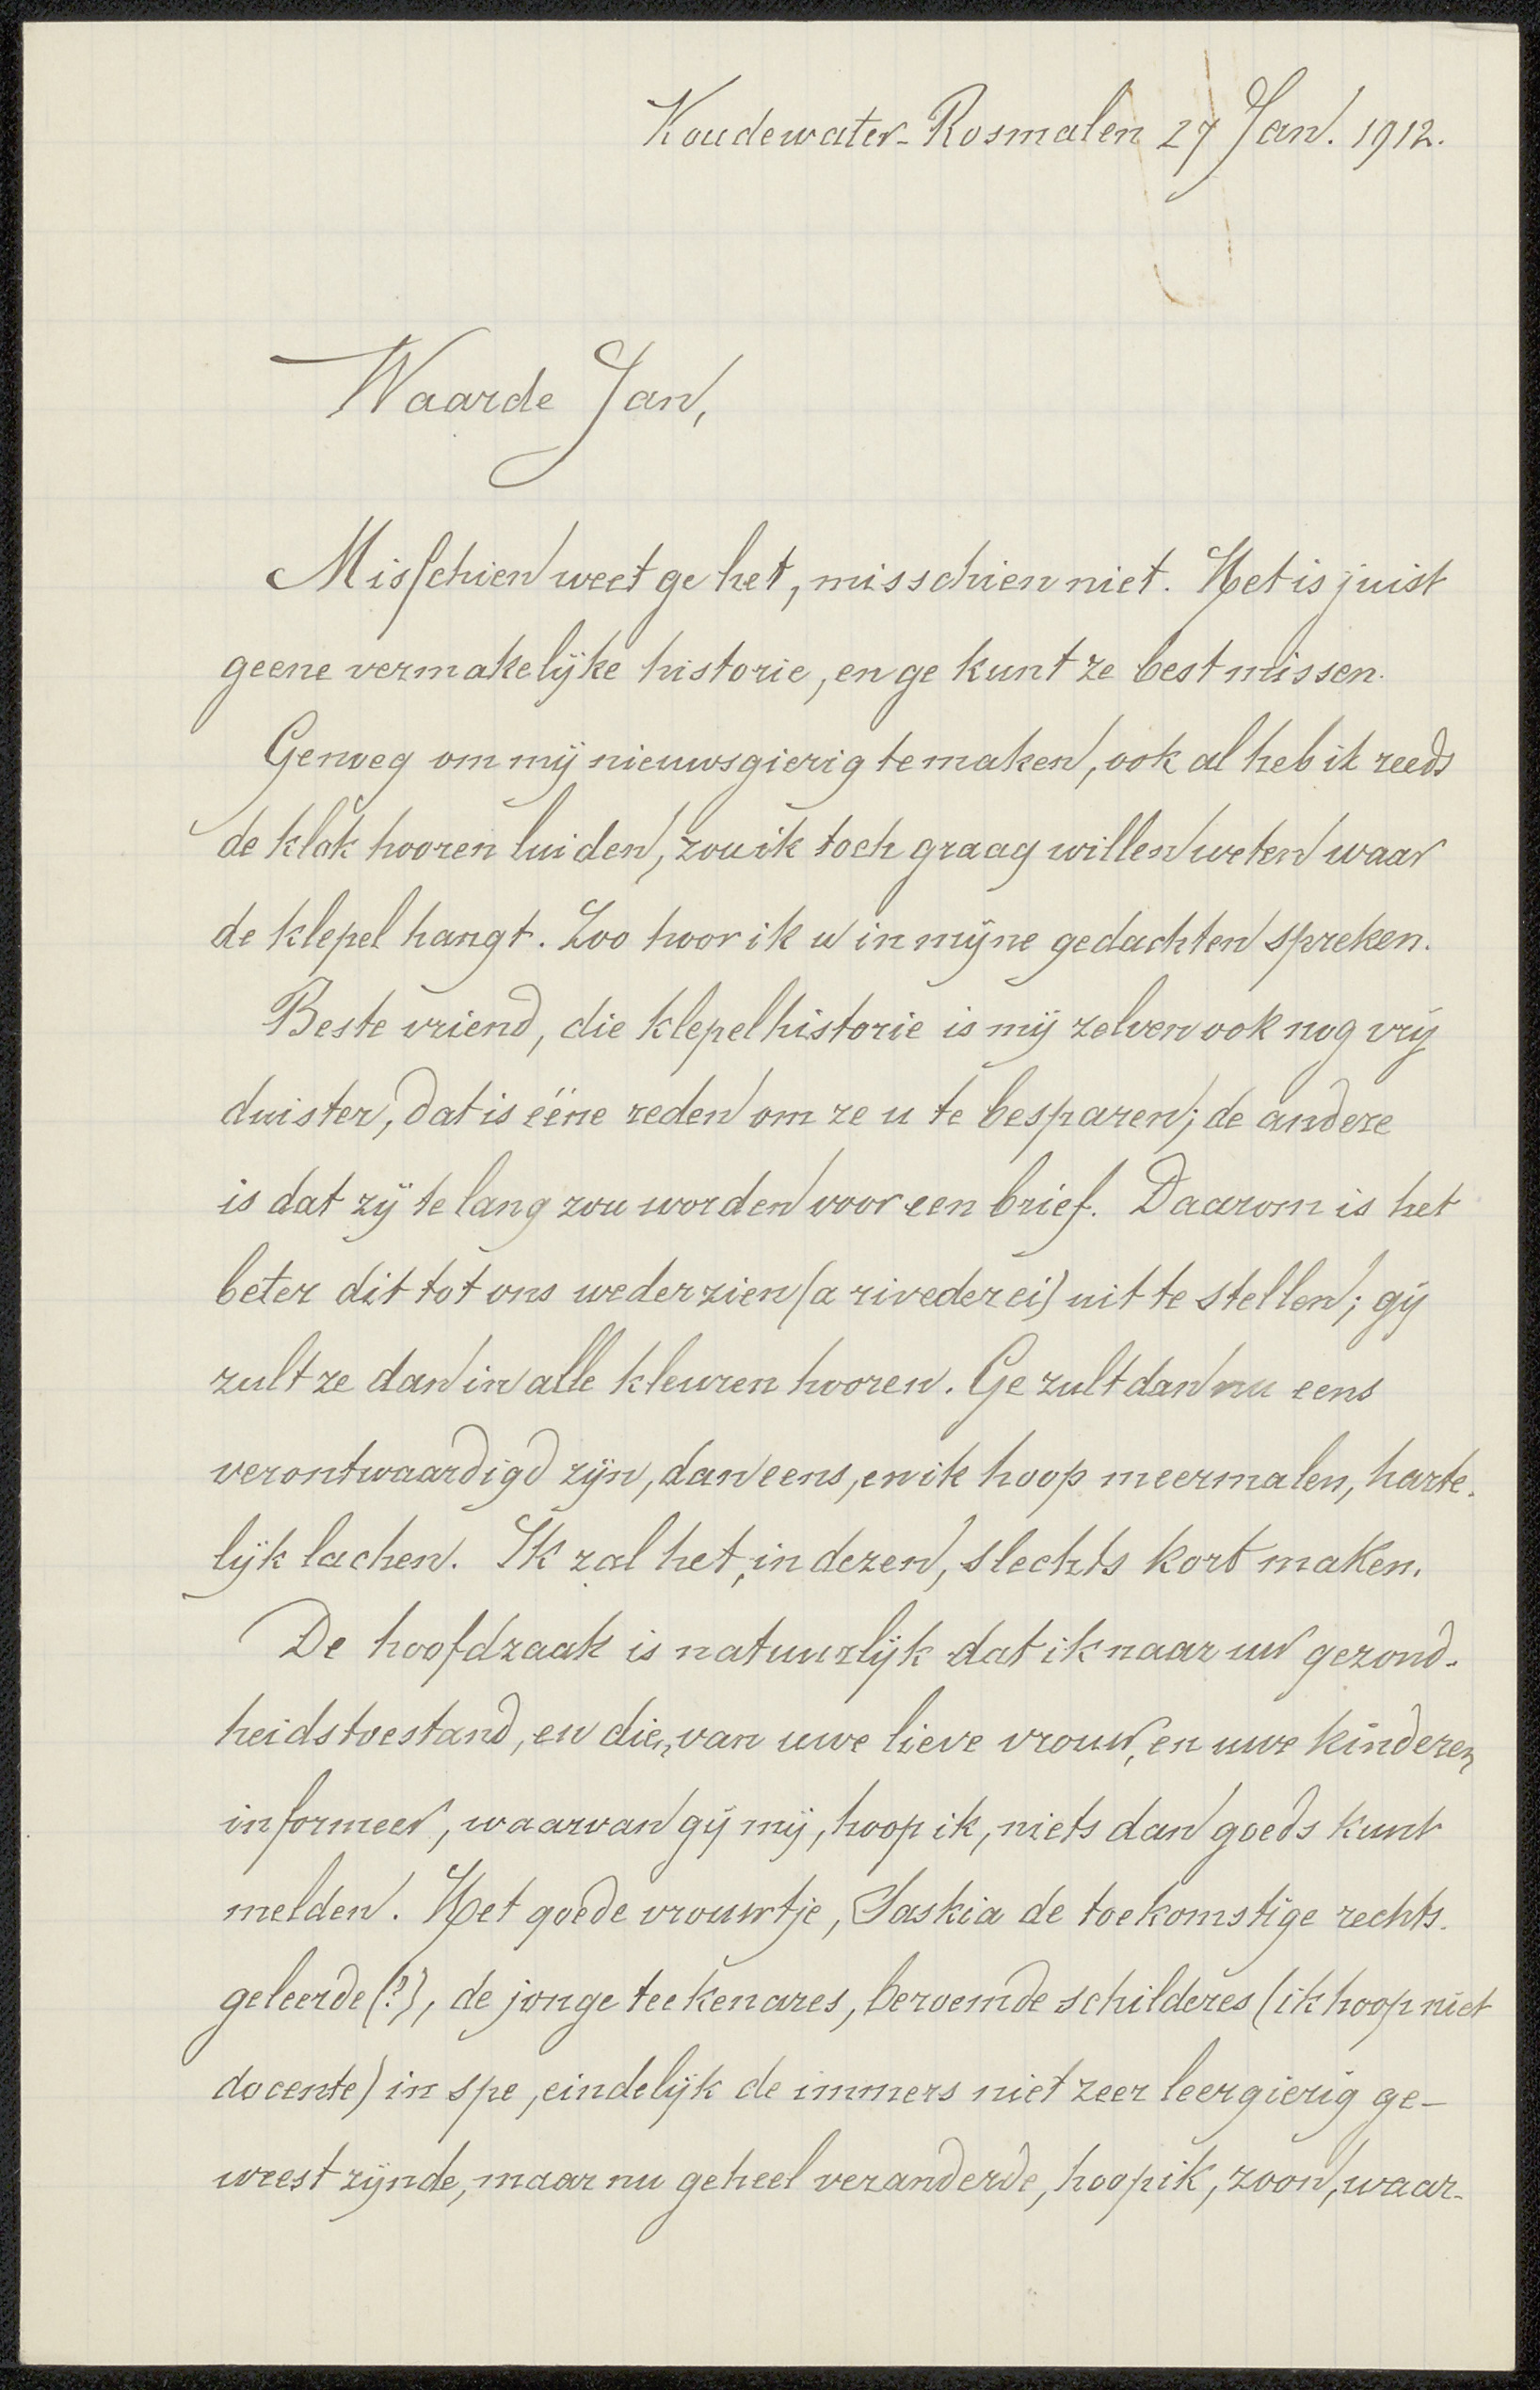 Koudewater-Rosmalen 27 Jan. 1912.
Waarde Jan,
Misschien weet ge het, misschien niet. Het is juist
geene vermakelijke historie, en ge kunt ze best missen.
Genoeg om mij nieuwsgierig te maken, ook al heb ik reeds
de klok hooren luiden, zou ik toch graag willen weten waar
de klepel hangt. Zoo hoor ik u in mijne gedachten spreken.
Beste vriend, die klepelhistorie is mij zelven ook nog vrij
duister, dat is ééne reden om ze u te besparen; de andere
is dat zij te lang zou worden voor een brief. Daarom is het
beter dit tot ons wederzien (a rivederci) uit te stellen; gij
zult ze dan in alle kleuren hooren. Ge zult dan nu eens
verontwaardigd zijn, dan eens, en ik hoop meermalen, harte-
lijk lachen. Ik zal het, in dezen, slechts kort maken.
De hoofdzaak is natuurlijk dat ik naar uw gezond-
heidstoestand, en die, van uwe lieve vrouw, en uwe kinderen
informeer, waarvan gij mij, hoop ik, niets dan goeds kunt
melden. Het goede vrouwtje, Saskia de toekomstige rechts-
geleerde (?), de jonge teekenares, beroemde schilderes (ik hoop niet
docente) in spe, eindelijk de immers niet zeer leergierig ge-
weest zijnde, maar nu geheel veranderde, hoop ik, zoon, waar-